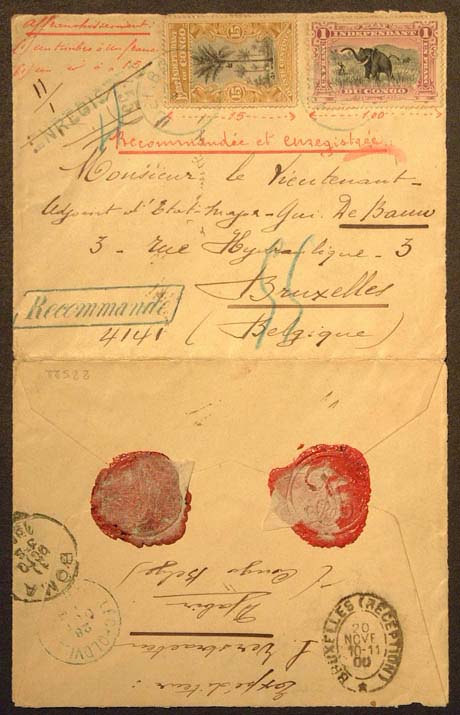 Affranchissement:
1) un timbre à un franc
2) un id à 15
ENREGIS
ETAT INDÉPENDANT
DU CONGO
15 15
ETAT INDÉPENDANT
1 1
DU CONGO
15
1,00
Recommandée et enregistrée
Monsieur le Lieutenant-
Adjoint d'Etat-Major-Gui. De Bauw
3 - rue Hydraulique - 3
Bruxelles
Recommandé
4141
(Belgique)
22522
BOMA
LEOPOLDVILLE
28
BRUXELLES (RECEPTION)
20
NOVE
10-11
00
Expéditeur:
L. Verstraeten
Djabir
(Congo Belge)